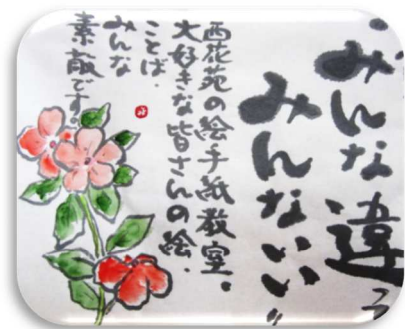 みんな違っ
みんないい〃
西花苑の絵手紙教室。
大好きな皆さんの絵、
ことば、
みんな
素敵です。